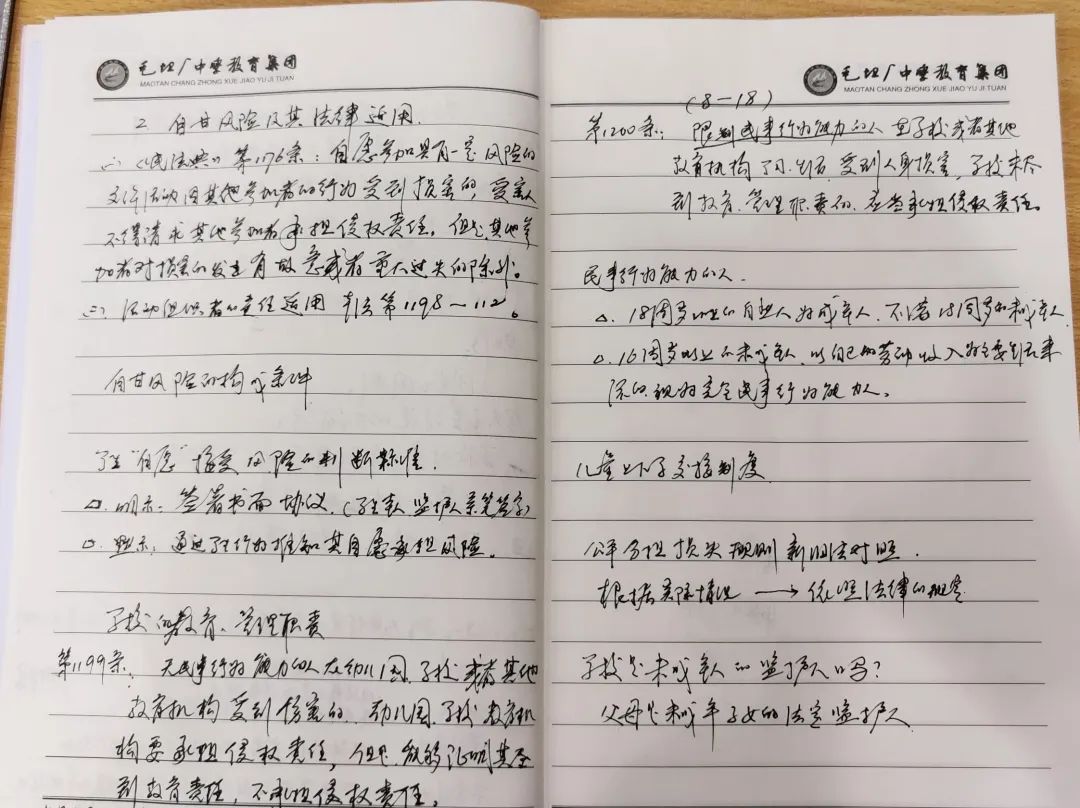 毛坦厂中学教育集团
MAOTAN CHANG ZHONG XUE JIAO YU JI TUAN
2 自甘风险及其法律适用.
(一)《民法典》第1176条:自愿参加具有一定风险的
文体活动因其他参加者的行为受到损害的,受害人
不得请求其他参加者承担侵权责任。但是其他参
加者对损害的发生有故意或者重大过失的除外。
(二) 活动组织者的责任适用 第1198~112。
自甘风险的构成条件
学生"自愿"接受风险的判断标准.
△.明示:签署书面协议.(学生本人 监护人亲笔签字)
△.默示:通过学生行为推知其自愿承担风险。
学校的教育、管理职责
第1199条:无民事行为能力的人在幼儿园.学校或者其他
教育机构受到伤害的.幼儿园.学校教育机
构要承担侵权责任,但是能够证明其尽
到教育责任,不承担侵权责任。
毛坦厂中学教育集团
MAOTAN CHANG ZHONG XUE JIAO YU JI TUAN
(8-18)
第1200条:限制民事行为能力的人在学校或者其他
教育机构学习.生活.受到人身损害,学校未尽
到教育.管理职责的.应当承担侵权责任。
民事行为能力的人.
△.18周岁以上的自然人为成年人.不满18周岁的未成年人
△.16周岁以上的未成年人,以自己的劳动收入为主要生活来
源的视为完全民事行为能力人。
儿童上下学交接制度
公平分担损失规则新旧法对照.
根据实际情况 → 依照法律的规定
学校是未成年人的监护人吗?
父母是未成年子女的法定监护人